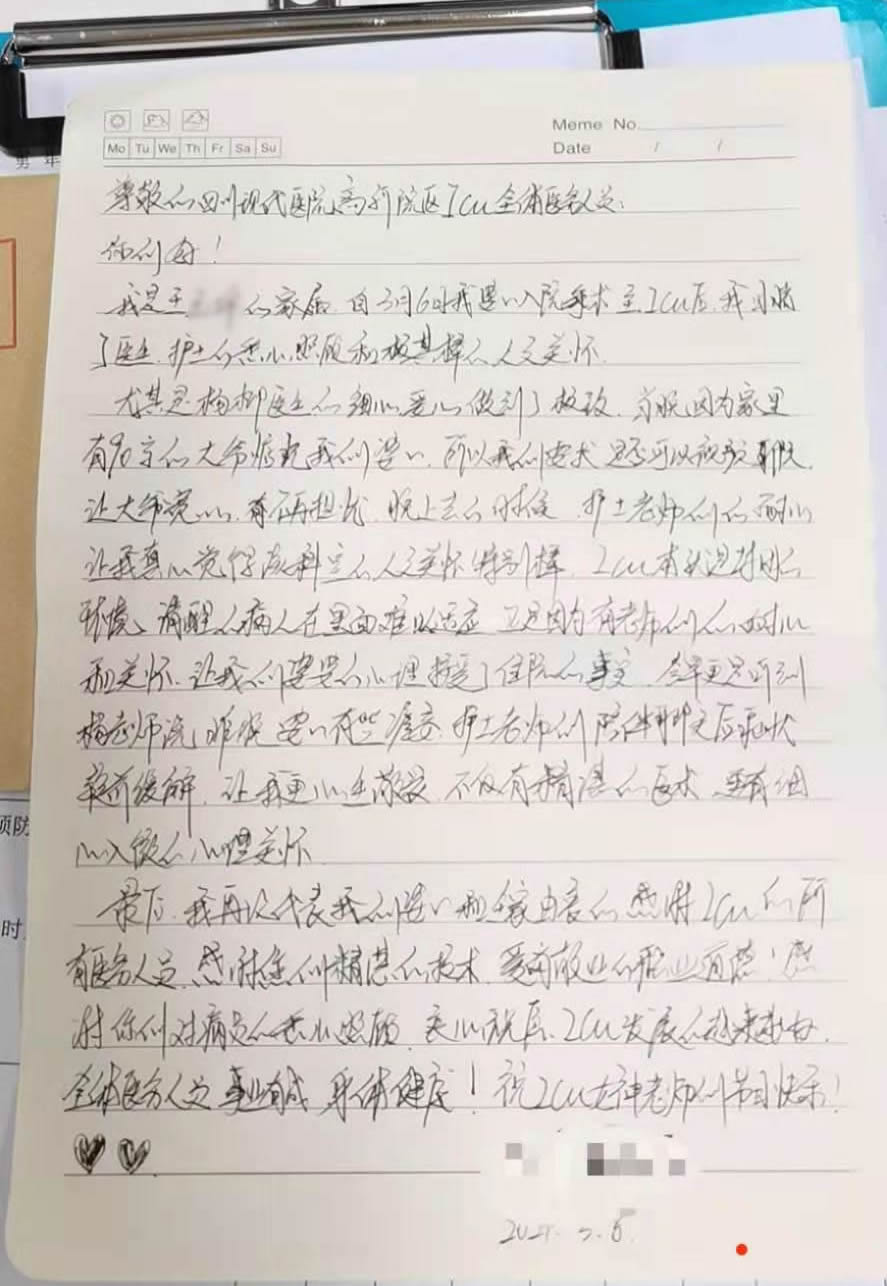 Meme No
Mo Tu We Th Fr Sa Su
Date / /
男 年
尊敬的四川现代医院高新院区ICU全体医务人员:
你们好!
我是王 的家属,自3月6日我婆婆入院手术至ICU后,我见证
了医生、护士的悉心照顾和极其棒的人文关怀.
尤其是杨柳医生的细心、爱心做到了极致,当晚因为家里
有90岁的大爷惦记我们婆婆,所以我们要求是否可以视频聊天,
让大爷宽心,不再担忧,晚上去的时候,护士老师们的耐心
让我真心觉得该科室的人文关怀特别棒,ICU本就是封闭的
环境,清醒的病人在里面难以适应,正是因为有老师们的耐心
和关怀,让我们婆婆的心理接受了住院的事实,今早更是听到
杨老师说,昨晚婆婆有些谵妄,护士老师们陪伴聊天后症状
较前缓解,让我更心生敬畏,不仅有精湛的医术,还有细
心入微的心理关怀.
最后,我再次代表我们婆婆和全家由衷的感谢ICU的所
有医务人员,感谢您们精湛的技术,爱岗敬业的职业道德!感
谢你们对病员的悉心照顾,衷心祝愿,ICU发展的越来越好,
全体医务人员事业有成,身体健康!祝ICU女神老师们节日快乐!
预防
时